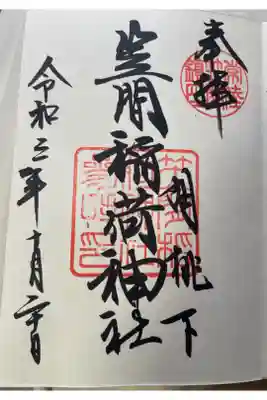 奉拝
胡桃下
笠間稲荷神社
令和三年十月二十日